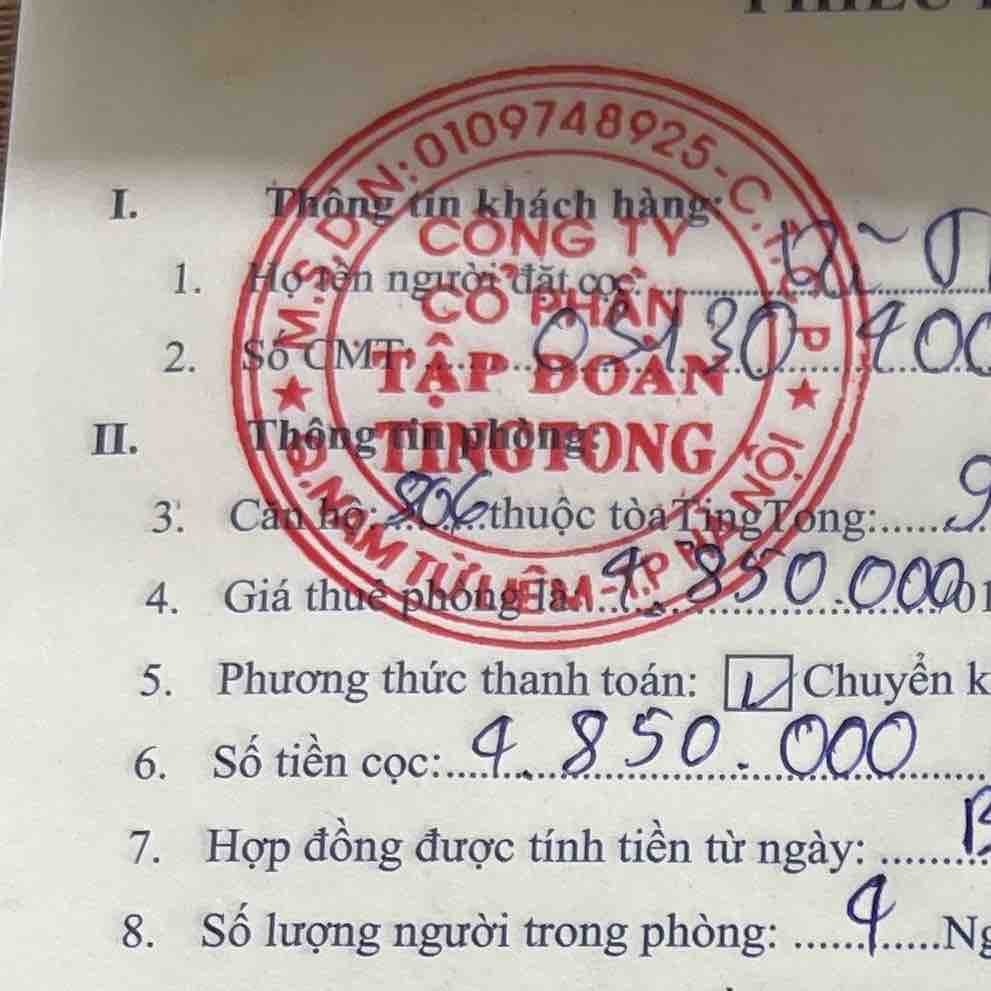 M.S.D.N:0109748925-C.T.C.P
CÔNG TY
CỔ PHẦN
TẬP ĐOÀN
TINGTONG
Q.NAM TỪ LIÊM-T.P HÀ NỘI
I. Thông tin khách hàng:
1. Họ tên người đặt cọc:
2. Số CMT: 05130 400
II. Thông tin phòng:
3. Căn hộ: 806 thuộc tòa TingTong: 9
4. Giá thuê phòng là: 4.850.000
5. Phương thức thanh toán: Chuyển k
6. Số tiền cọc: 4.850.000
7. Hợp đồng được tính tiền từ ngày:
8. Số lượng người trong phòng: 4 Ng